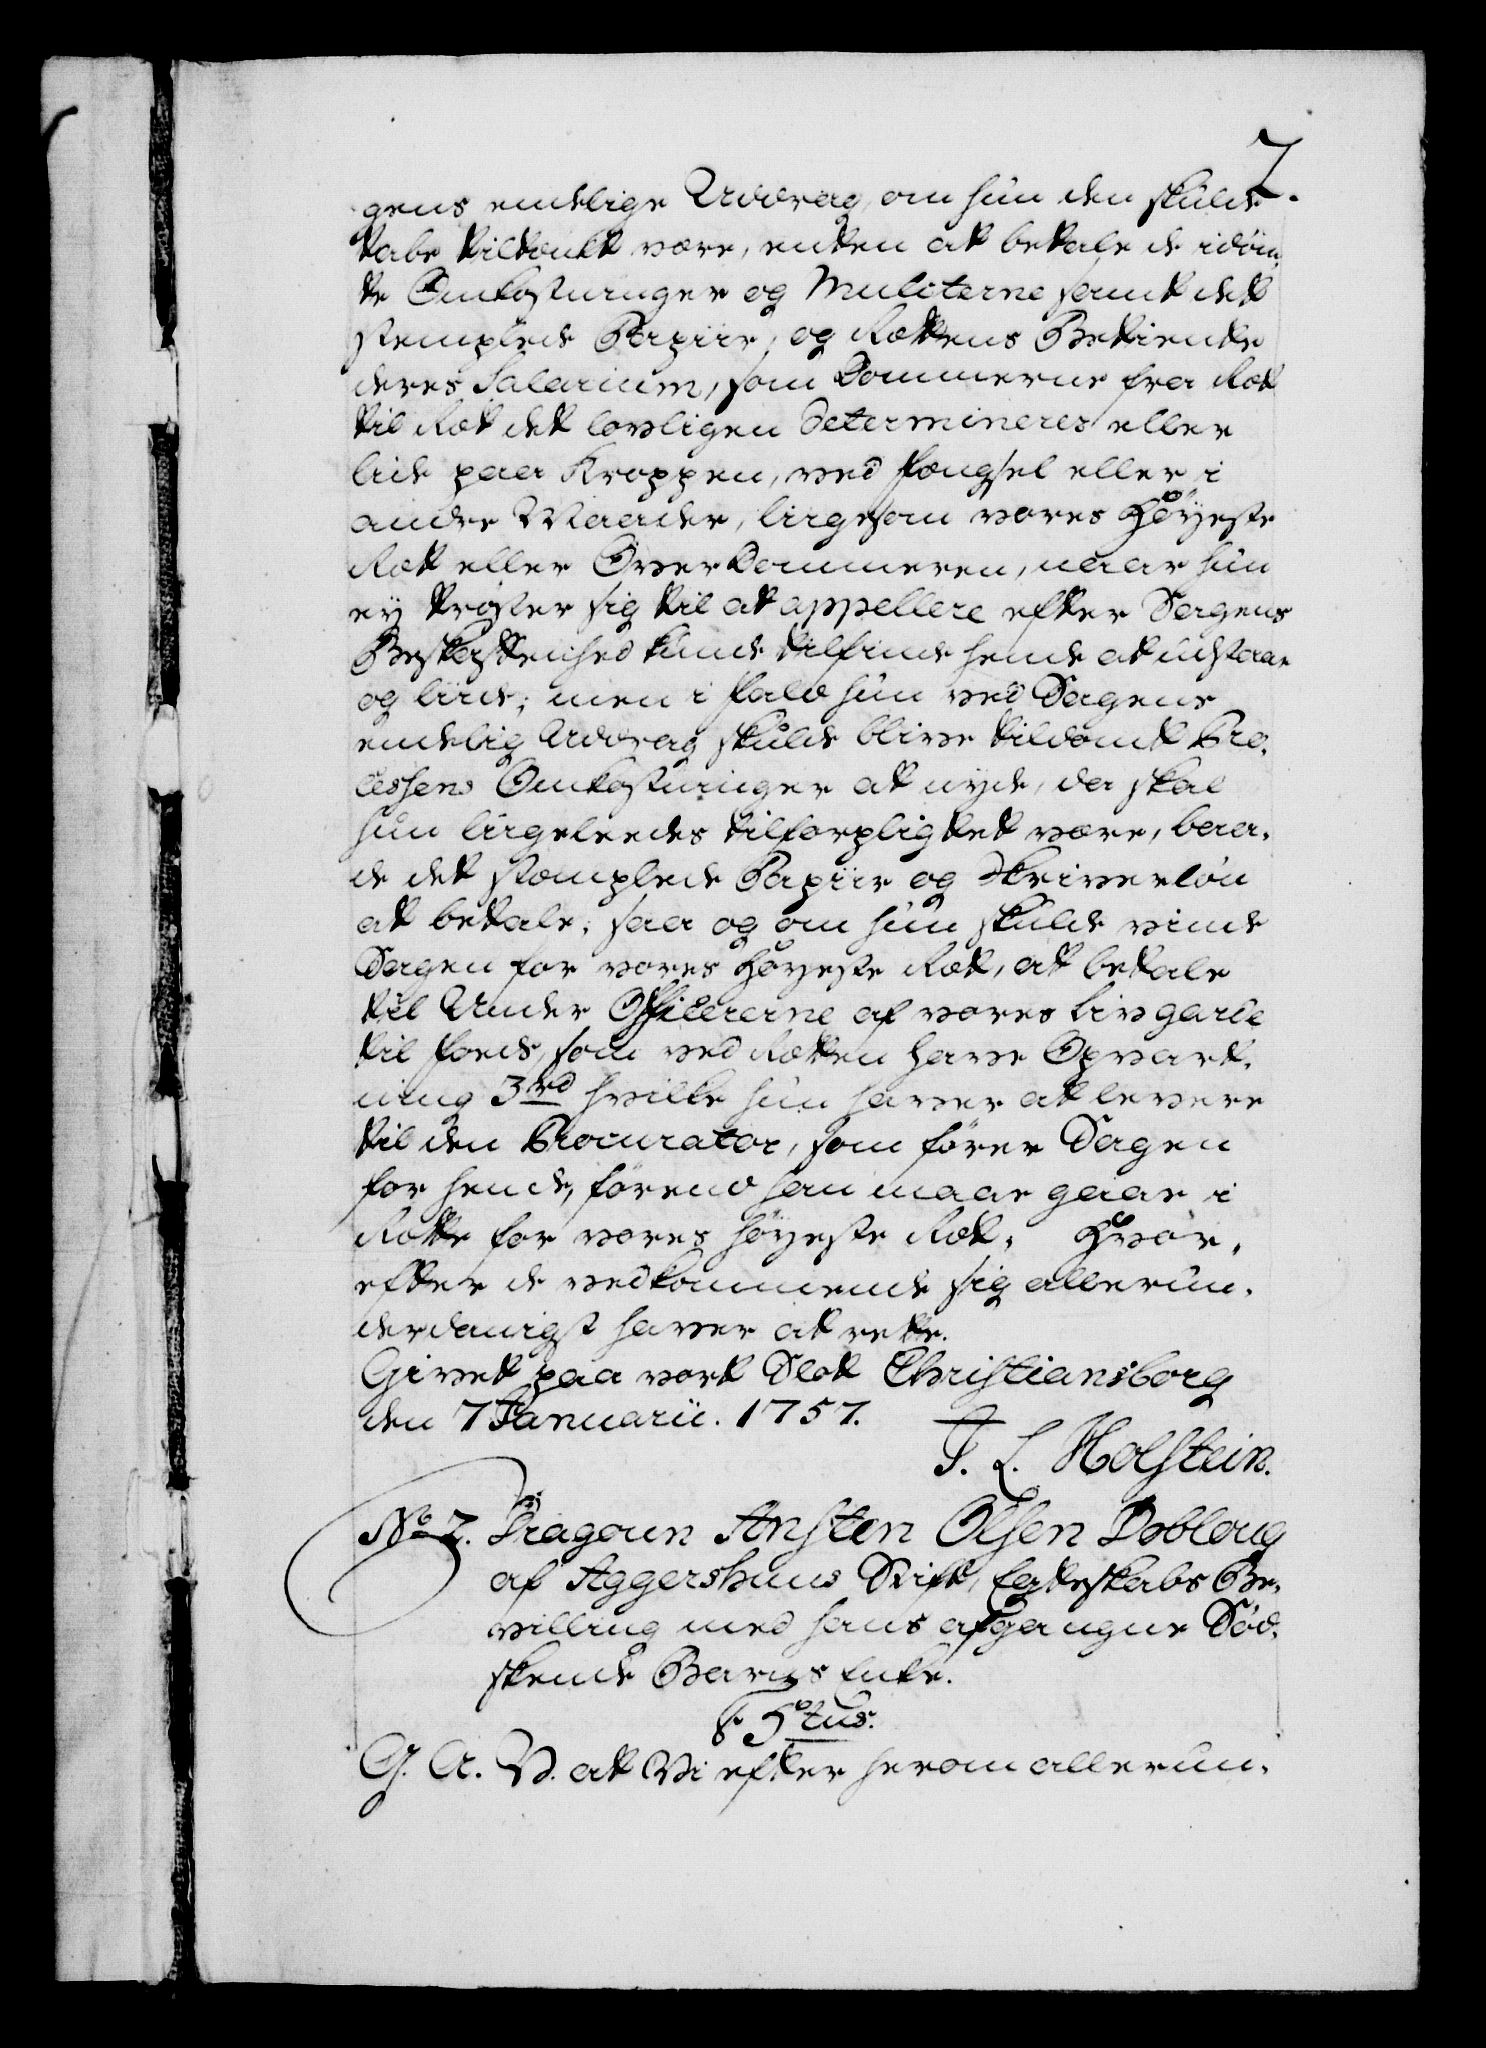 2.
gens endelige Uddrag, om hun den skulde
tabe tildømt være, enten at betale de idøm,
te Omkostninger og Mulcterne samt det
stemplede Papiir, og Rettens Betiente
deres Salarium, som Dommerne fra Ret
til Ret det lovligen determinerer eller
lide paa Kroppen, ved Fængsel eller i
andre Maader, liigesom vores Høyeste
Ret eller OverDommeren, naar hun
ey trøster sig til at appellere efter Sagens
Beskaffenhed kunde tilfinde hende at udstaae
og liide; men i fald hun ved Sagens
endelig Uddrag skulde blive tildømt Pro,
cessens Omkostninger at nyde, da skal
hun liigeleedes tilforpligtet være, baa,
de det stemplede Papiir og Skriverløn
at betale; saa og om hun skulde vinde
Sagen for vores Høyeste Ret, at betale
til Under Officererne af vores Livgarde
til foeds, som ved Retten have Opvart,
ning 3 rd hvilke hun haver at levere
til den Procurator, som fører Sagen
for hende, førend han maae gaae i
Rette for vores høyeste Ret. Hvor,
efter de vedkommende sig allerun,
derdanigst haver at rette.
Givet paa vort Slot Christiansborg
den 7 Januarii. 1757.
J. L. Holstein.
No 2. Dragoun Ansten Olsen Dobloug
af Aggershuus Stift, Egteskabs Be,
villing med hans afgangne Sød,
skende Barns Enke.
F 5 tus.
G. A. V. at Vi efter herom allerun,